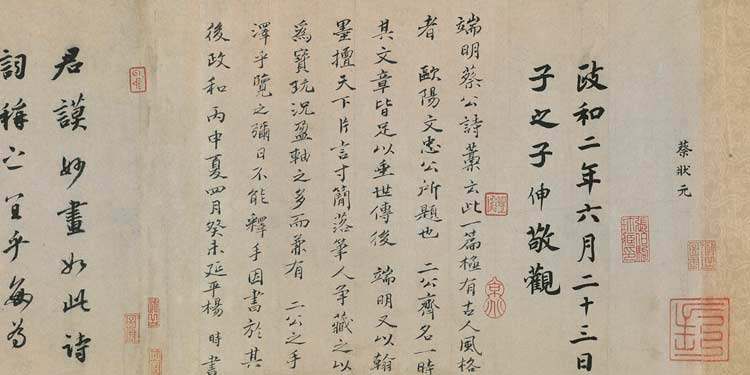 蔡狀元
政和二年六月二十三日
子之子伸敬觀
端明蔡公詩藁云此一篇極有古人風格
者 歐陽文忠公所題也 二公齊名一時
其文章皆足以垂世傳後 端明又以翰
墨擅天下片言寸簡落筆人爭藏之以
為寶玩況盈軸之多而兼有 二公之手
澤乎覽之彌日不能釋手因書於其
後政和丙申夏四月癸未延平楊 時書
君謨妙畫如此詩
詞稱之宜乎每為